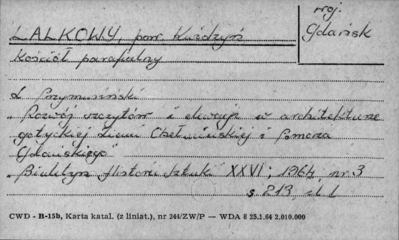 LALKOWY, pow. Kwidzyń
woj. Gdańsk
Kościół parafialny
Ł Przymusiński
"Rozwój szczytów i elewacji w architekturze
gotyckiej Ziemi Chełmińskiej i Pomorza
Gdańskiego"
"Biuletyn Historii Sztuki XXVI, 1964, nr. 3
s. 219, il. 1
CWD - B-15b, Karta katal. (z liniat.), nr 244/ZW/P — WDA 8 25.1.64 2.010.000